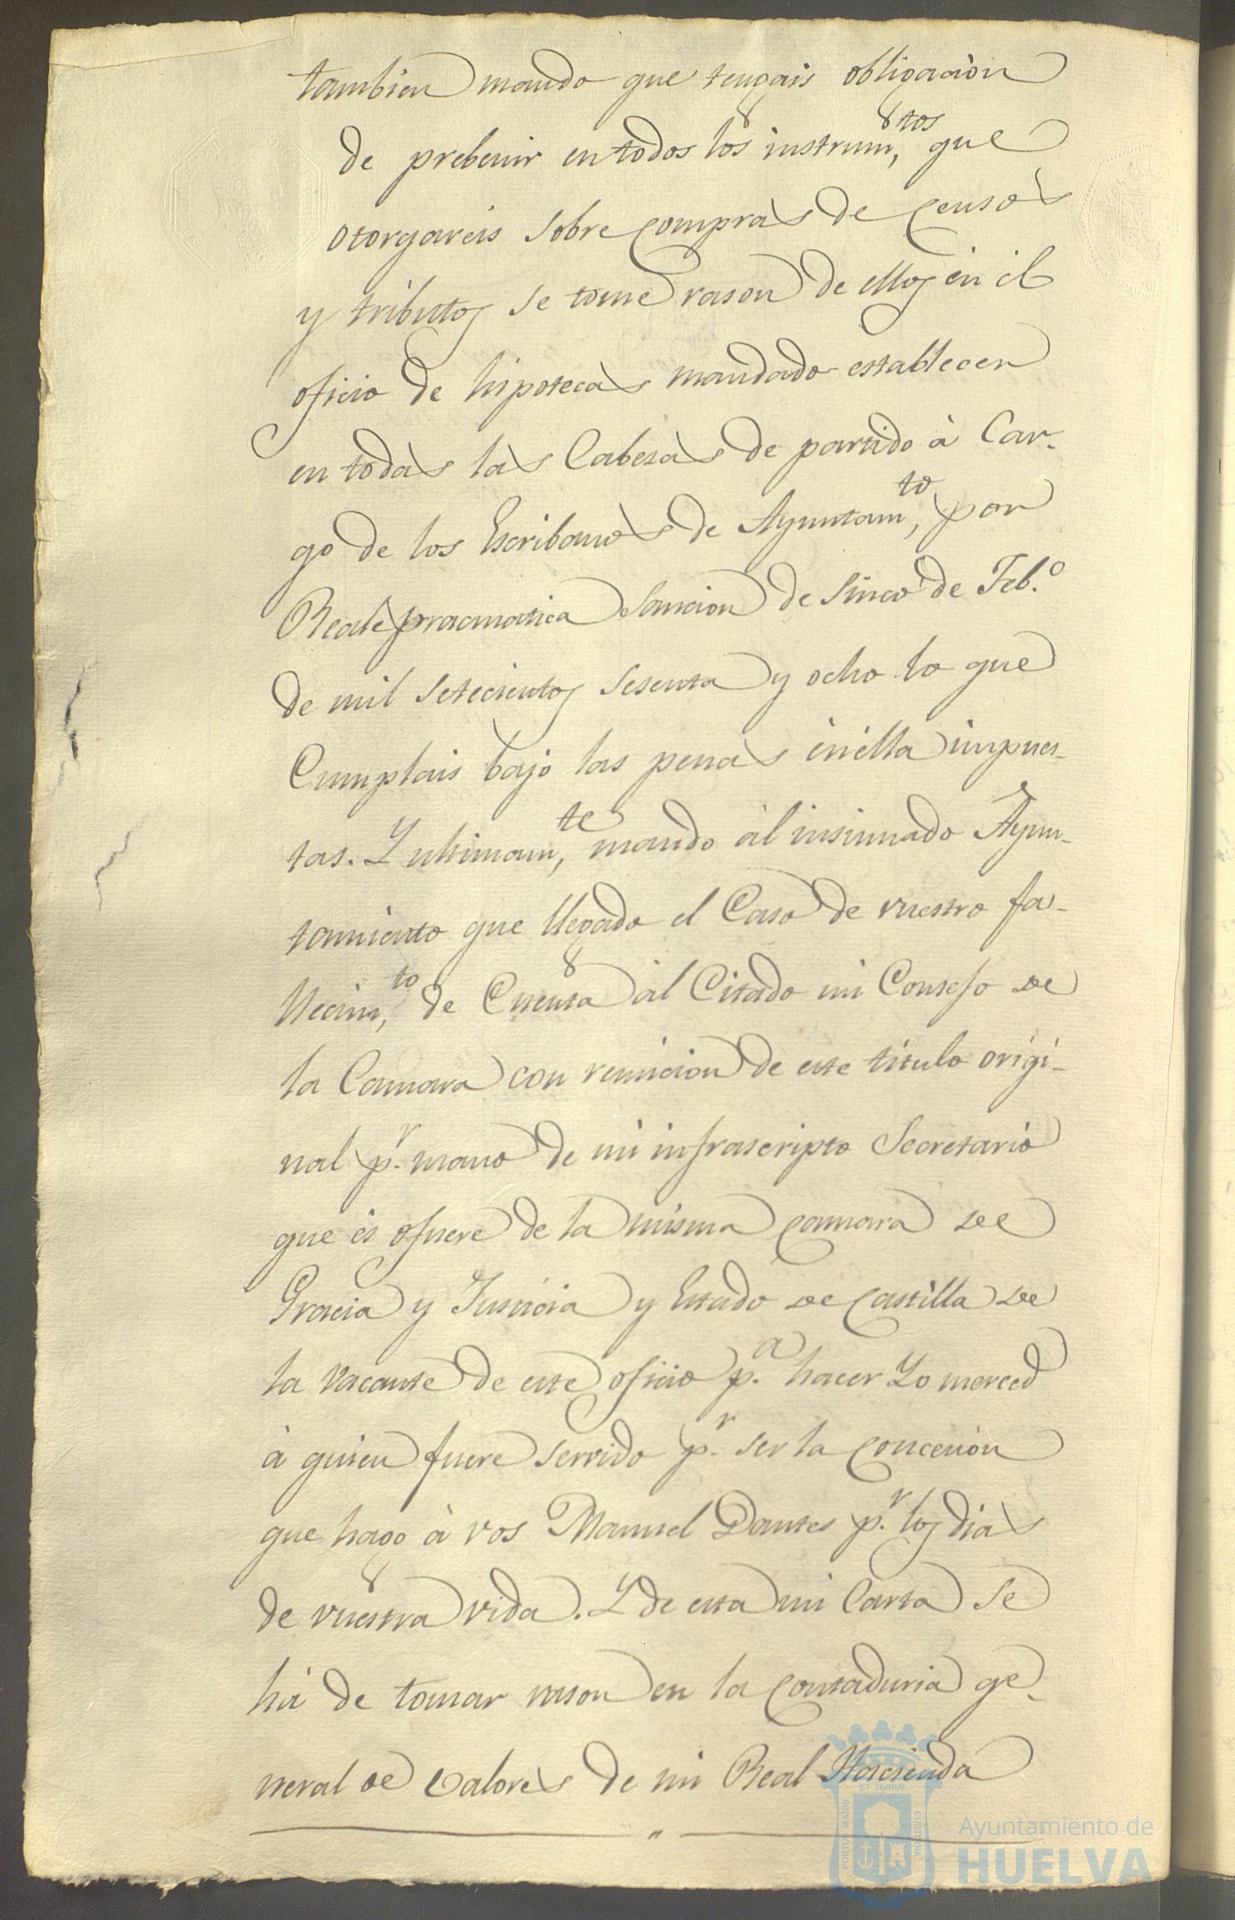 tambien mando que tengais obligacion
de prebenir en todos los instrum,tos que
otorgareis sobre compras de censos
y tributos se tome rason de ellos en el
oficio de hipotecas mandado establecer
en todas las Cabesas de partido à Car-
go de los Escribanos de Ayuntam,to por
Reale pracmatica sancion de sinco de Feb.o
de mil setecientos sesenta y ocho lo que
Cumplais bajo las penas en ella impues-
tas. Y ultimam,te mando al insinuado Ayun-
tamiento que llegado el Caso de vuestro fa-
llecim,to de Cuenta al Citado mi Consejo de
la Camara con remicion de este titulo origi-
nal p.r mano de mi infrascripto Secretario
que es o fuere de la misma camara de
Gracia y Justicia y Estado de Castilla de
la vacante de este oficio p.a hacer Yo merced
à quien fuere servido p.r ser la concecion
que hago à vos Manuel Dantes p.r los dias
de vuestra vida. Y de esta mi Carta se
hà de tomar rason en la contaduria ge-
neral de valores de mi Real Hacienda
PORTUS MARIS ET TERRAE CUSTODIA
Ayuntamiento de
HUELVA